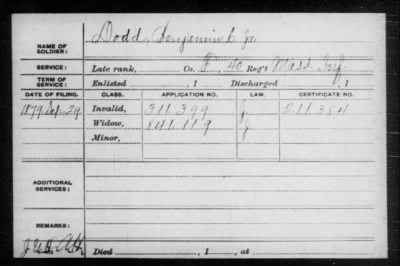 NAME OF SOLDIER: Dodd, Benjamin L. Jr.
SERVICE: Late rank, Co. 40 Reg't Mass Inf
TERM OF SERVICE: Enlisted , 1 Discharged , 1
DATE OF FILING. CLASS. APPLICATION NO. LAW. CERTIFICATE NO.
1879 Sep. 29. Invalid, 311.399 211.384
Widow, 841.119
Minor,
ADDITIONAL SERVICES:
REMARKS:
Died , 1 , at